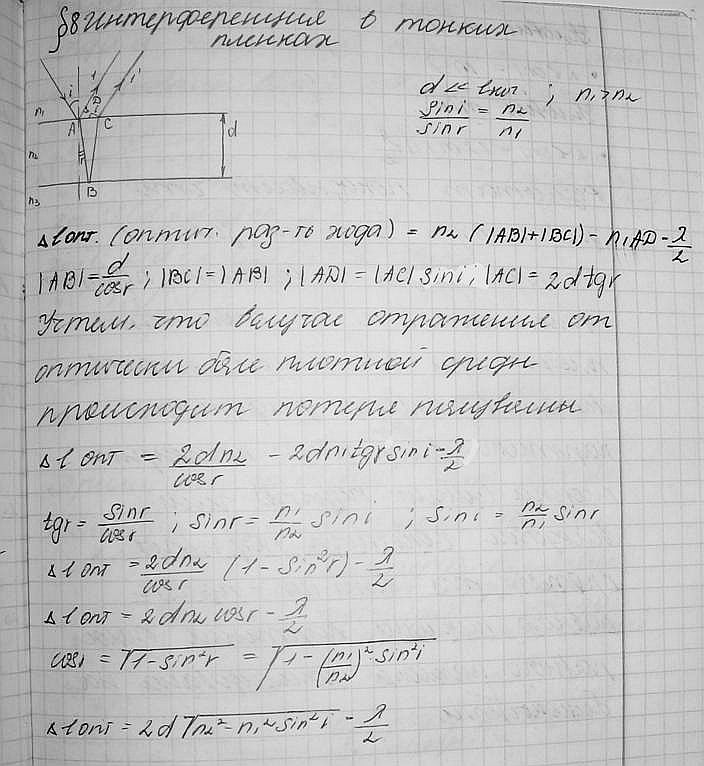 §8 Интерференция в тонких
пленках
d << lког ; n₁>n₂
sin i / sin r = n₂ / n₁
i 1 1'
n₁ A D C
d
n₂
B
n₃
Δlопт. (оптич. раз-ть хода) = n₂ (|AB|+|BC|) - n₁AD - λ/2
|AB| = d/cosr ; |BC|=|AB| ; |AD| = |AC| sin i ; |AC| = 2dtgr
Учтем, что в случае отражения от
оптически боле плотной среды
происходит потеря полуволны
Δlопт = 2dn₂/cosr - 2dn₁tgr sin i - λ/2
tgr = sinr/cosr ; sinr = n₁/n₂ sin i ; sin i = n₂/n₁ sinr
Δlопт = 2dn₂/cosr (1 - sin²r) - λ/2
Δlопт = 2dn₂ cosr - λ/2
cosr = √(1 - sin²r) = √(1 - (n₁/n₂)² sin²i)
Δlопт = 2d √(n₂² - n₁² sin²i) - λ/2